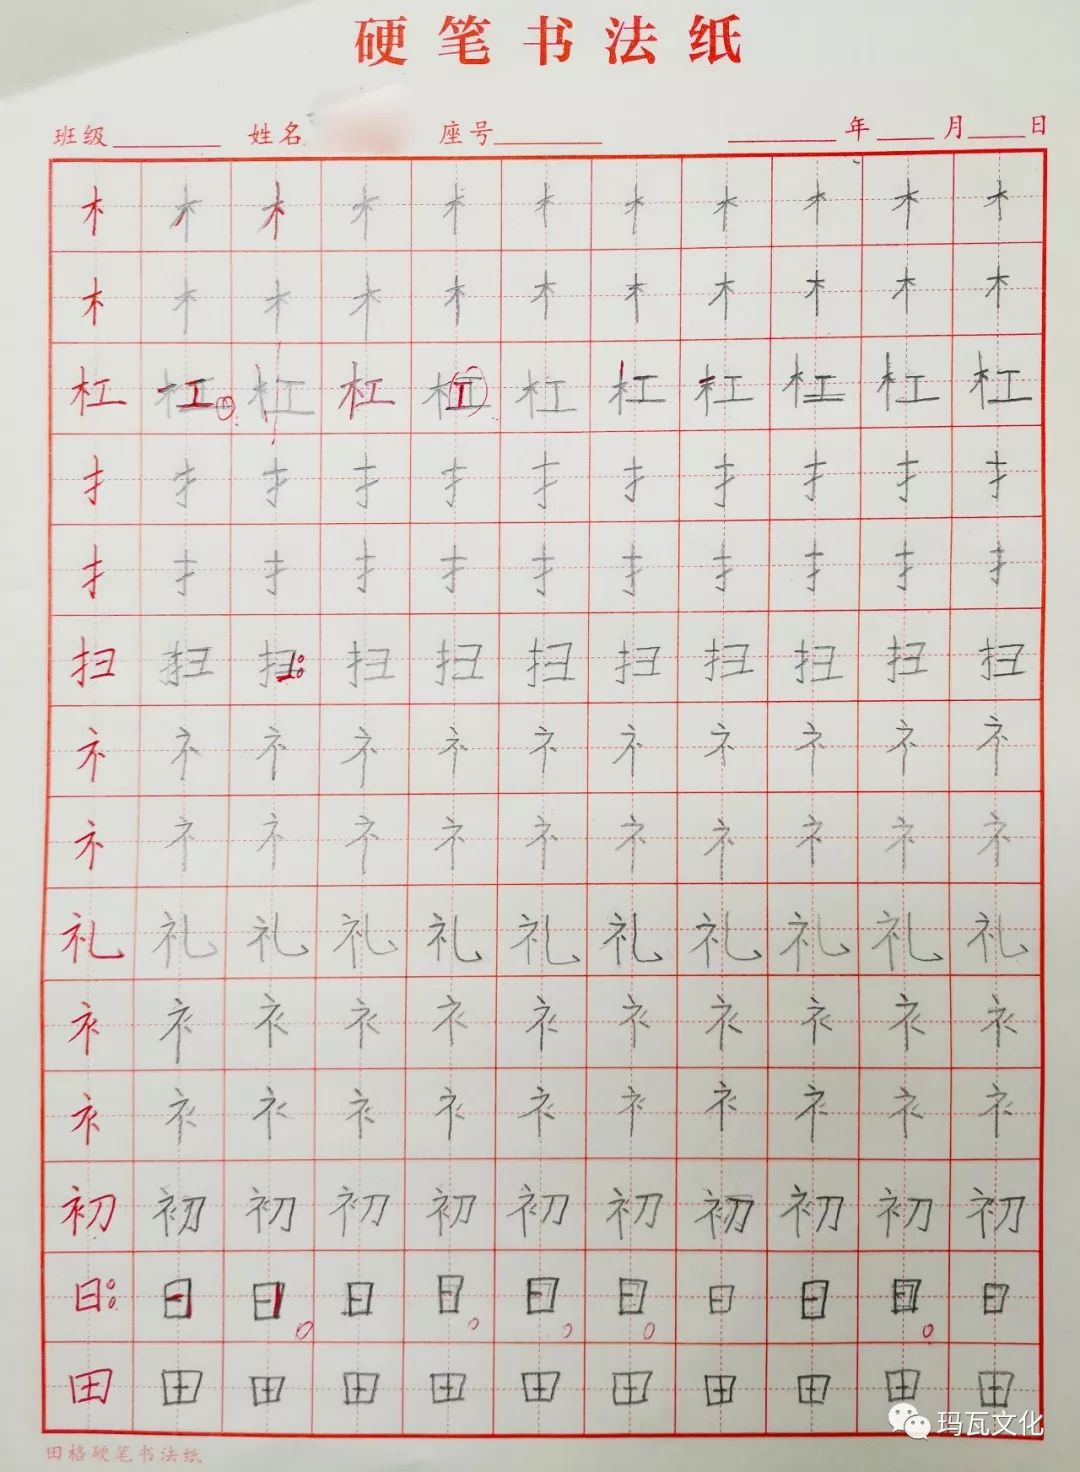 硬笔书法纸
班级 姓名 座号 年 月 日
木 木 木 木 木 木 木 木 木 木 木
木 木 木 木 木 木 木 木 木 木 木
杠 杠 杠 杠 杠 杠 杠 杠 杠 杠 杠
扌 扌 扌 扌 扌 扌 扌 扌 扌 扌 扌
扌 扌 扌 扌 扌 扌 扌 扌 扌 扌 扌
扫 扫 扫 扫 扫 扫 扫 扫 扫 扫 扫
礻 礻 礻 礻 礻 礻 礻 礻 礻 礻 礻
礻 礻 礻 礻 礻 礻 礻 礻 礻 礻 礻
礼 礼 礼 礼 礼 礼 礼 礼 礼 礼 礼
衤 衤 衤 衤 衤 衤 衤 衤 衤 衤 衤
衤 衤 衤 衤 衤 衤 衤 衤 衤 衤 衤
初 初 初 初 初 初 初 初 初 初 初
日 日 日 日 日 日 日 日 日 日 日
田 田 田 田 田 田 田 田 田 田 田
田格硬笔书法纸
玛瓦文化